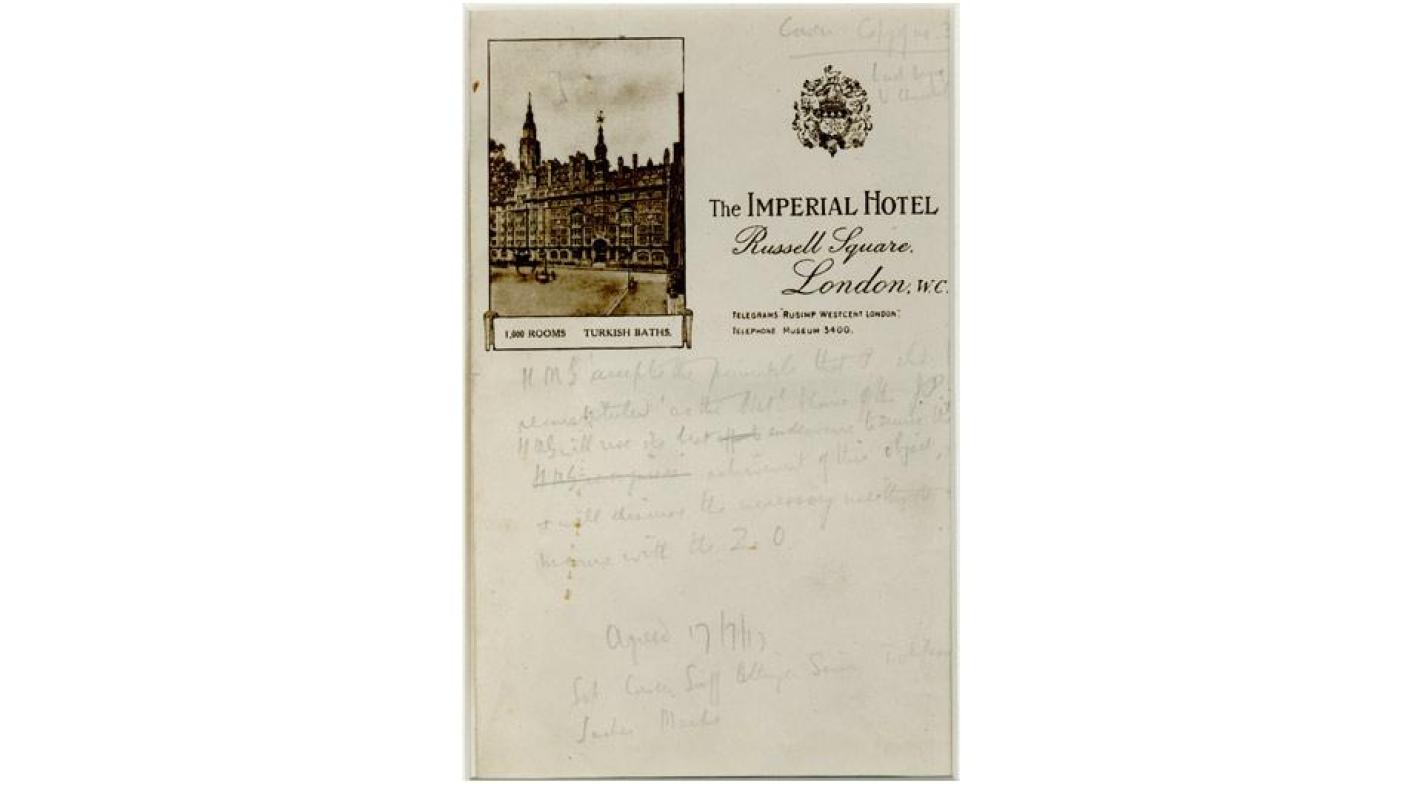 1,000 ROOMS TURKISH BATHS.
The IMPERIAL HOTEL
Russell Square.
London, W.C.
TELEGRAMS "RUSIMP WESTCENT LONDON".
TELEPHONE MUSEUM 3400.
H M G accepts the principle that P
reconstituted as the Nat'l Home of the J.P.
HMG will use its best endeavours to secure the
achievement of this object,
& will discuss the necessary methods
means with the Z. O.
Agreed 17/7/17
Cowen Sieff Ettinger Simon
Sacher Marks